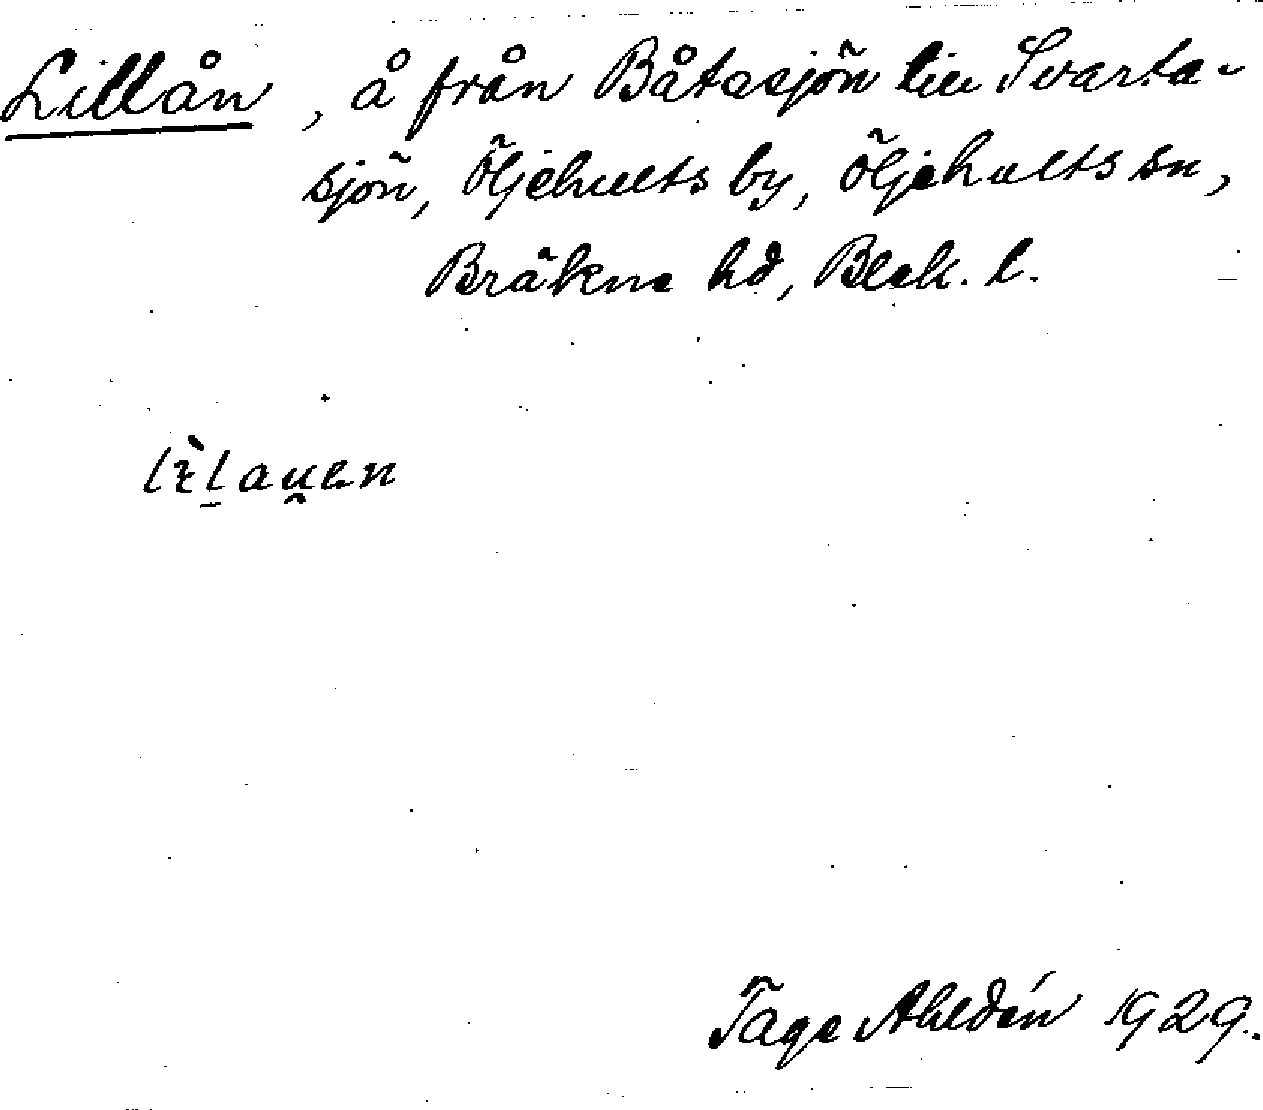 Lillån, å från Båtasjön till Svarta-
sjön, Öljehults by, Öljehults sn,
Bräkne hd, Blek. l.
lìl̠au̯en
Tage Ahldén 1929.